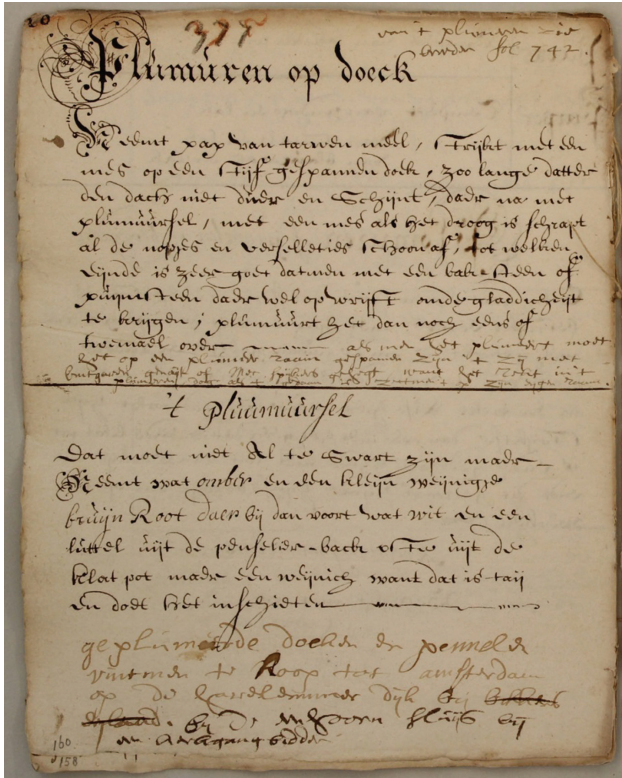 20
377
van 't plumeren zie
breeder fol 742.
Plümüren op doeck
Neemt pap van tarwen meel, strijkt met een
mes op een stijf gespannen doek, zoo lange datter
den dach niet duer en schijnt, daer na met
plümüürsel, met een mes als het droog is schrapt
al de nopjes en verselleties schoon af, tot welken
eijnde is zeer goet datmen met een bak-steen of
puijmsteen daer wel op wrijft om de gladdicheijt
te krijgen; plümüürt het dan noch eens of
twemael over als men het plumeert moet
het op een plumeer raam gespannen zijn
't plüümüürsel
Dat moet niet Al te swart zijn maer
Neemt wat omber en een kleijn weijnigge
bruijn Root daer bij dan voort wat wit en een
luttel uijt de penselier-back ofte uijt de
klat pot maer een weijnich want dat is taij
en doet het inschieten
geplumeerde doeken en penneelen
vintmen te koop tot amsterdam
op de haerlemmer dijk bij
bij de eenhoorn sluijs bij
een
160
158